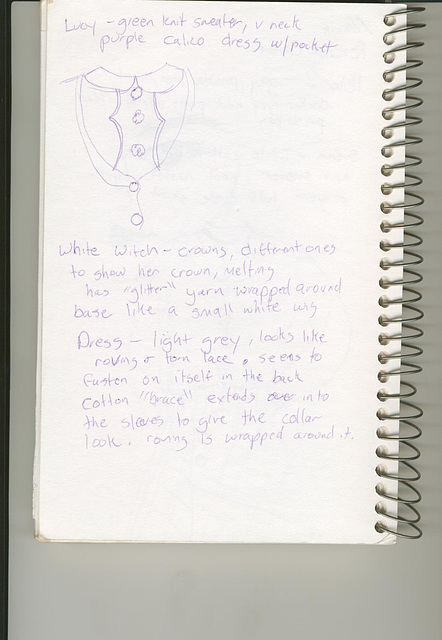 Lucy - green knit sweater, v neck
purple calico dress w/pocket
White Witch - crowns, different ones
to show her crown, melting
has "glitter" yarn wrapped around
base like a small white wig
Dress - light grey, looks like
roving + torn lace. seems to
fasten on itself in the back
cotton "brace" extends over into
the sleaves to give the collar
look. roving is wrapped around it.